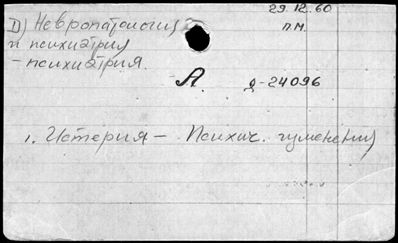 D) Невропатология
и психиатрия
- психиатрия.
29.12.60
п.м.
А. д-24096
1. Истерия - Психич. изменения